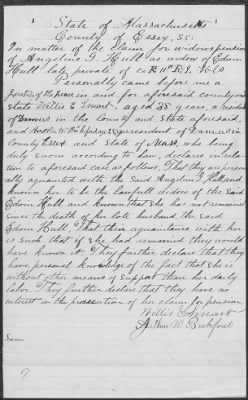 State of Massachusetts
County of Essex, SS:
In matter of the Claim for widows pension
of Angeline G. Hull as widow of Edwin
Hull late private of Co
Personally came before me a
Justice of the peace in and for aforesaid county and
State Willis E. Smart, aged 38 years, a resident
of Danvers in the County and State aforesaid,
and Arthur W. Beckford, resident of Danvers in
County Essex and State of Mass, who being
duly sworn according to law, declare in rela-
tion to aforesaid case as follows: That they are person-
ally aquainted with the said Angeline G. Hull and
known her to be the lawfull widow of the said
Edwin Hull and known that she has not remarried
since the death of her late husband, the said
Edwin Hull. That their aquaintance with her
is such that if she had remarried they would
have known it. They further declare that they
have personal knowledge of the fact that she is
without other means of support than her daily
labor. They further declare that they have no
interest in the prosecution of her claim for pension
Willis E Smart
Arthur W. Beckford
9